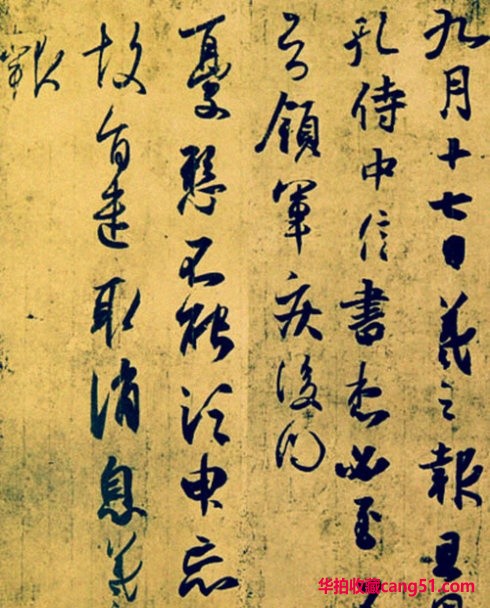 九月十七日羲之報且
孔侍中信書想必至
領軍疾後問
憂懸不能須臾忘
故旨遣取消息羲
報
华拍收藏cang51.com